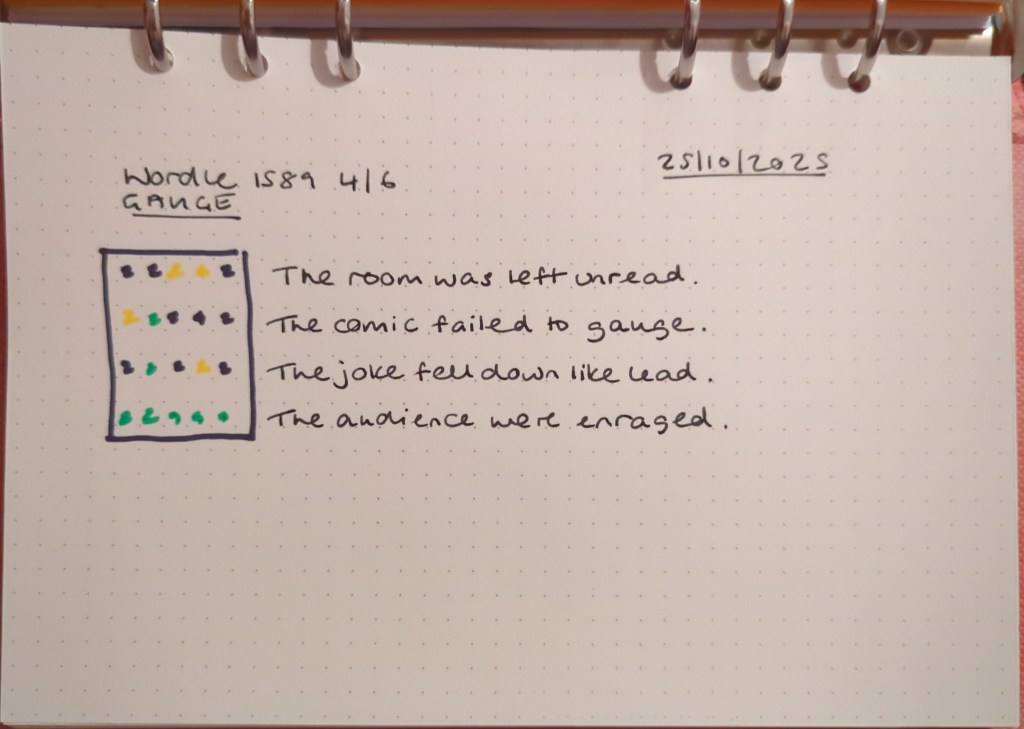 Wordle 1589 4/6
GAUGE
25/10/2025
The room was left unread.
The comic failed to gauge.
The joke fell down like lead.
The audience were enraged.